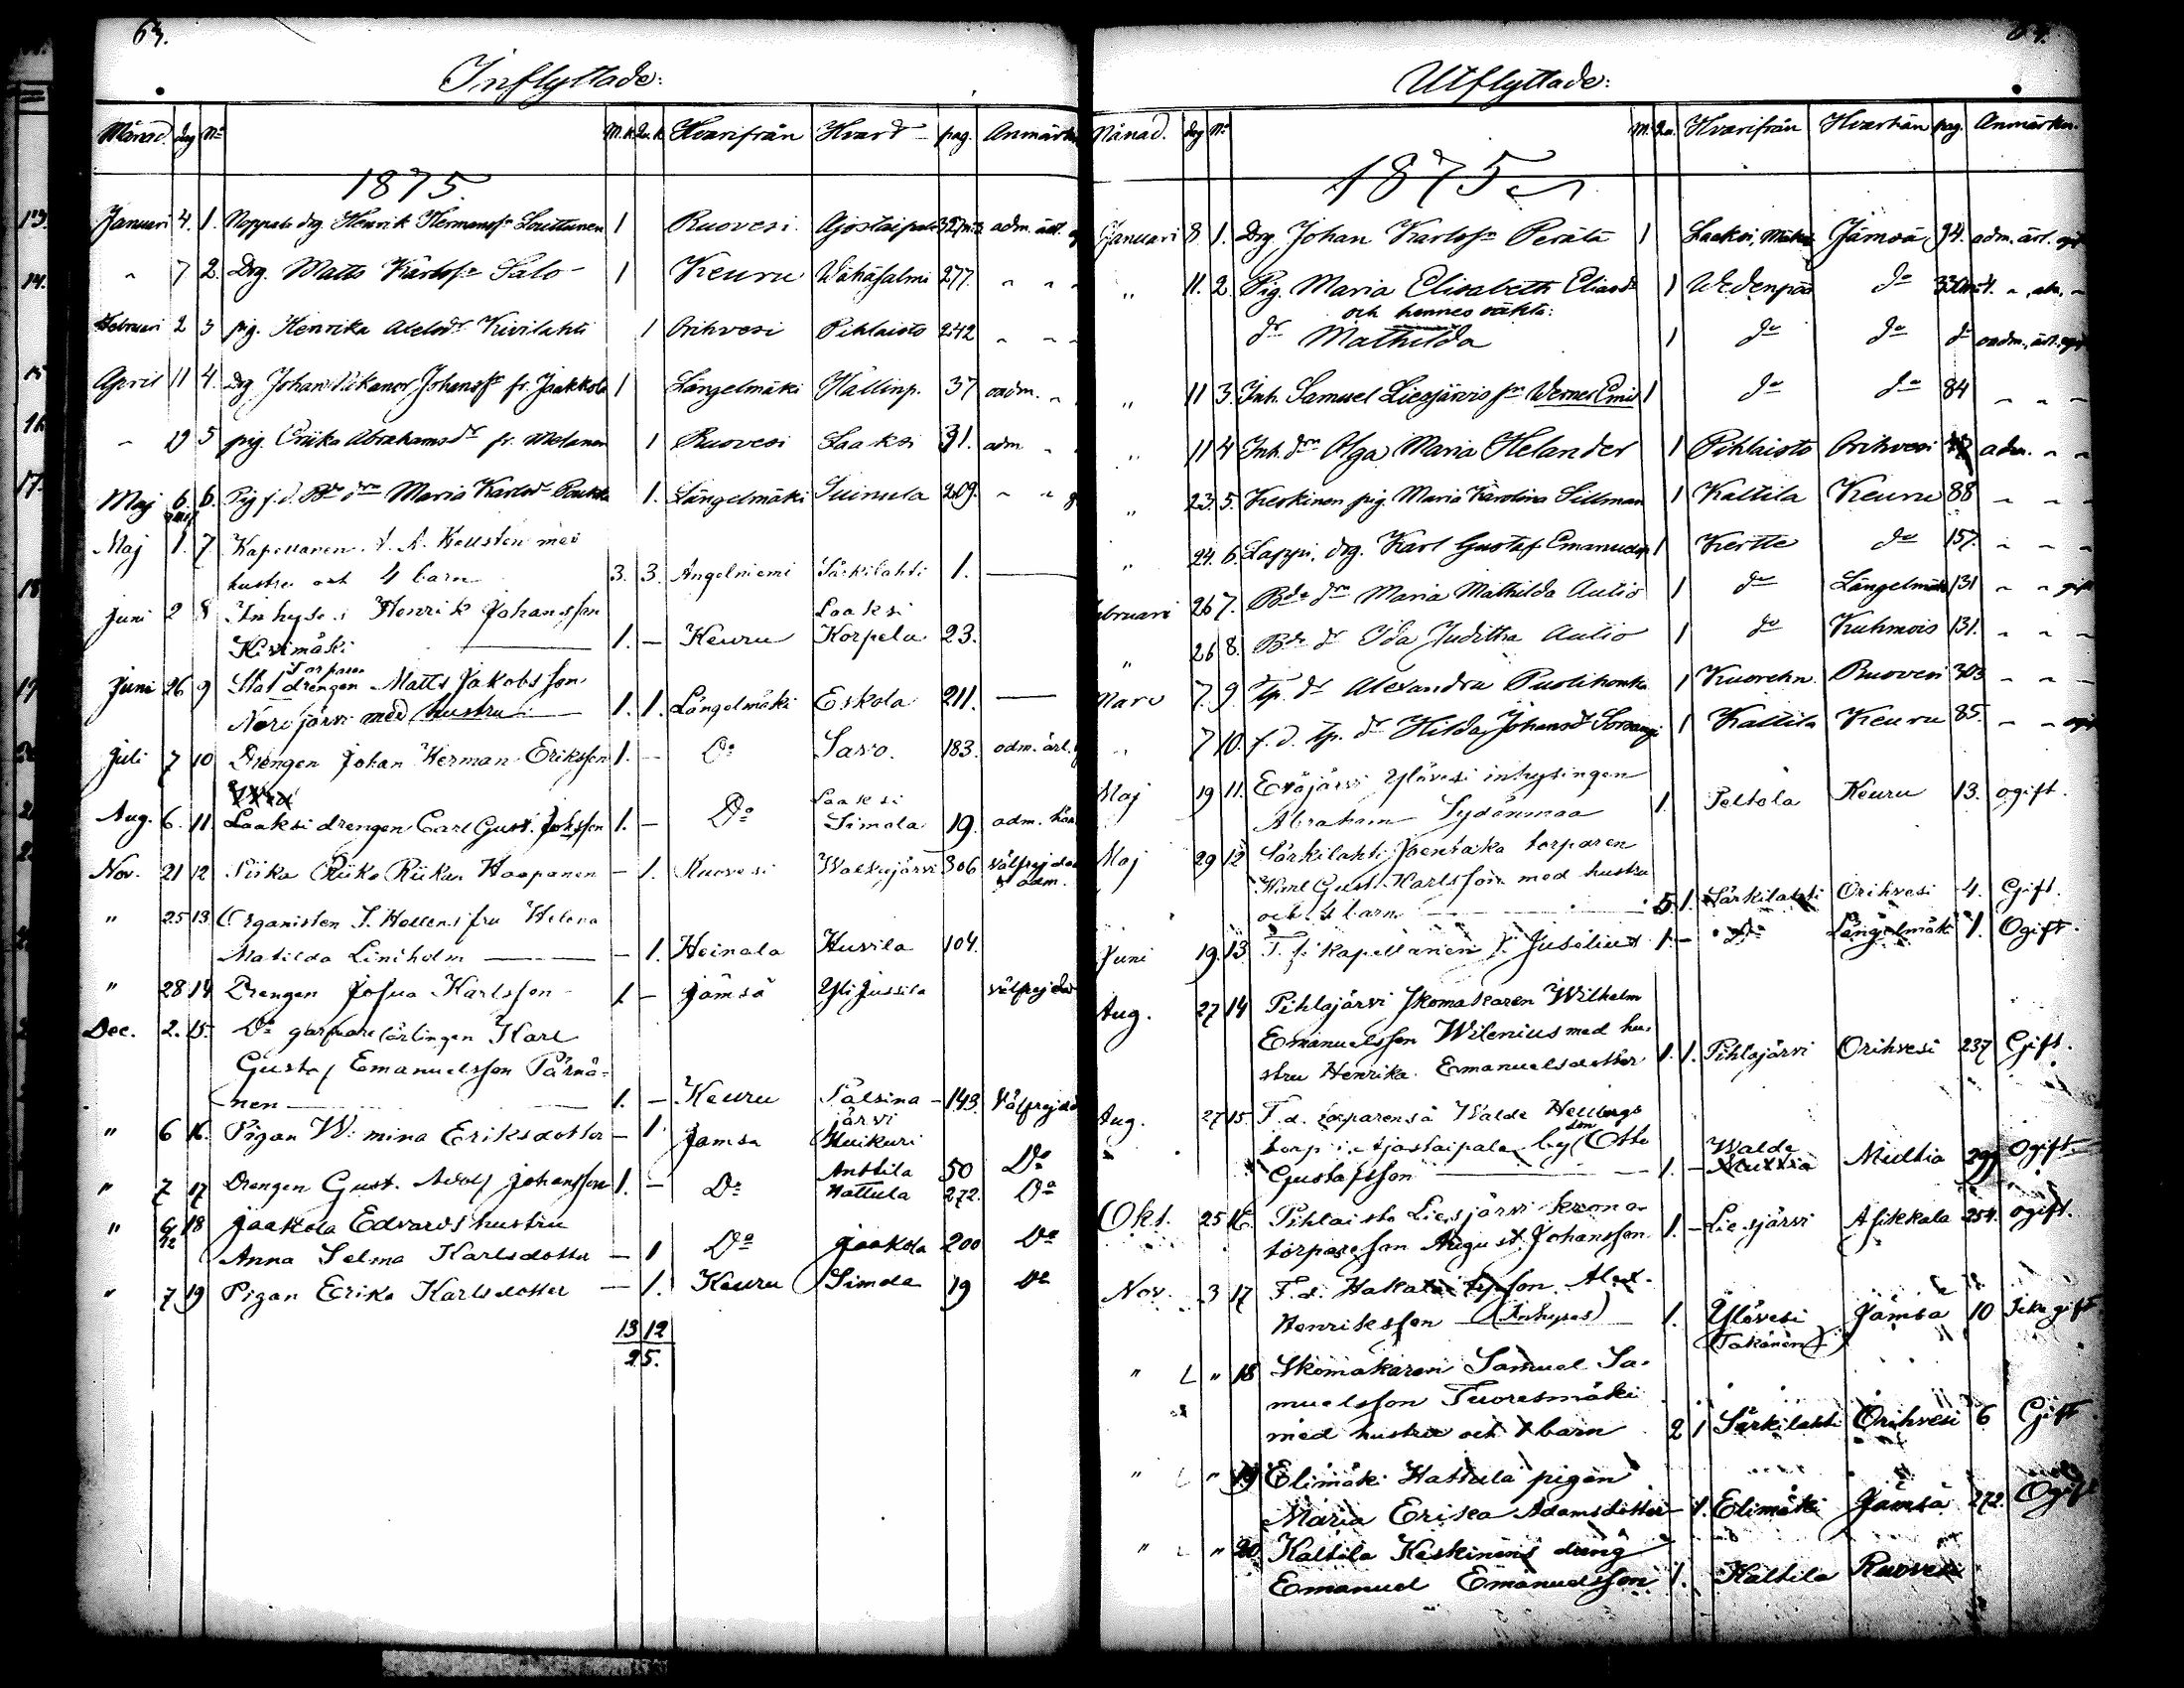 63.
Inflyttade:
Månad. dag No M.k. Qv.k. Hvarifrån Hvart pag. Anmärkn
1875.
Januari 4. 1. drg. Henrik Hermanss:n 1 Ruovesi adm. ärl.
" 7 2. Drg. Matts Karlss:n Salo 1 Keuru Wähäsalmi 277. " " "
Februari 2 3 pig. Henrika Axelsdr Kivilahti 1 Orihvesi Pihlaisto 242 " " "
April 11 4. drg Johan Nikanor Johanss:n fr. Jaakkola 1 Längelmäki Hallinp. 37 oadm. "
" 19 5 pig. Eriika Abrahamsdr fr. 1 Ruovesi Laaksi 31. adm "
Maj 6. 6. Pig f.d. Bde dr Maria Karlsdr 1. Längelmäki Suinula 209. " "
Maj 1. 7. Kapellanen A. A. Hellsten med
hustru och 4 barn 3. 3. Angelniemi Särkilahti 1. —
Juni 2 8 Inhyses Henrik Johansson Laaksi
Kivimäki — 1. — Keuru Korpela 23.
Torpare
Juni 26 9 Statdrengen Matts Jakobsson
Nerijärvi med hustru — 1. 1. Längelmäki Eskola 211. —
Juli 7 10 Drengen Johan Herman Eriksson 1. — Do Savo. 183. adm. ärl.
Aug. 6. 11. Laaksi drengen Carl Gust. 1. — Do Laaksi Simola 19. adm.
Nov. 21 12 Riika Haapanen — 1. Ruovesi 306 välfrejdad
& adm.
" 25 13 Organisten J. Hollens fru Helena
Matilda Lindholm — — 1. Heinola Huvila 104.
" 28 14 Drengen Josua Karlsson 1. — Jämsä Yli Jussila välfrejdad
Dec. 2. 15. Do garfvarelärlingen Karl
Gustaf Emanuelsson Pärnä-
nen — 1. — Keuru Pälsina- 143. Välfrejdad
järvi
" 6 16. Pigan W:mina Eriksdotter — 1. Jämsä Huikuri
Anttila 50 Do
" 7 17 Drengen Gust. Adolf Johansson 1. — Do Hattula 272. Do
" 6/12 18 Jaakola Edvards hustru
Anna Selma Karlsdotter — 1 Do Jaakola 200 Do
" 7 19 Pigan Erika Karlsdotter — 1. Keuru Simola 19 Do
13 12
25.
Utflyttade:
Månad. dag No M. Qv. Hvarifrån Hvarthän pag. Anmärkn.
1875
Januari 8. 1. Drg Johan Karlss:n Perälä 1 Laaksi, Jämsä 94. adm. ärl.
" 11. 2. Pig. Maria Elisabeth Eliasdr 1 Wedenpää do "
och hennes oäkta:
dr Mathilda 1 do do do oadm., ärl.
" 11 3. Inh. Samuel Liesjärvis s:n Werner Emil 1 do do 84 " " "
" 11 4 Inh. dr Olga Maria Helander 1 Pihlaisto Orihvesi adm. " "
" 23. 5. Keskinen pig. Maria Karolina Sillman 1 Kaltila Keuru 88 " " "
" 24. 6. drg. Karl Gustaf Emanuelss:n 1 Kertte do 157. " " "
Februari 26 7. Bde dr Maria Mathilda Aulio 1 do Längelmäki 131 " " gift
" 26 8. Bde dr Ida Juditha Aulio 1 do Kuhmois 131. " " "
Mars 7. 9. Tp. dr Alexandra Puolihonka 1 Kuorehn. Ruovesi 303 " " "
" 7 10. f. d. tp. dr Hilda Johansdr 1 Kaltila Keuru 85. " "
Maj 19 11. Eväjärvi Ylävesi inhysingen
Abraham Sydänmaa 1. Peltola Keuru 13. ogift.
Maj 29 12 Särkilahti Joentaka torparen
Karl Gust. Karlsson med hustru
och 4 barn — 5. 1. Särkilahti Orihvesi 4. Gift.
Juni 19. 13. T. f. kapellanen J. Juselius 1. — Do Längelmäki 1. Ogift.
Aug. 27 14 Pihlajärvi skomakaren Wilhelm
Emanuelsson Wilenius med hu-
stru Henrika Emanuelsdotter 1. 1. Pihlajärvi Orihvesi 237 Gift.
Aug. 27 15. F. d. Walde Hellbergs
torp i Ajostaipale by son Otto Walde
Gustafsson — 1. — Multia 299 Ogift.
Okt. 25 16. Pihlaisto Liesjärvi krono-
torpareson August Johansson 1. — Liesjärvi Asikkala 254. ogift.
Nov. 3 17 F. d. Hakala son Alex.
Henriksson — (Inhyses) 1. Ylävesi Jämsä 10 Icke gift
(Takanen)
" " 18 Skomakaren Samuel Sa-
muelsson Tuoresmäki
med hustru och 1 barn 2 1 Särkilahti Orihvesi 6 Gift
" " 19 Elimäki Hattula pigan
Maria Erika Adamsdotter — 1. Elimäki Jämsä 272. Ogift
" " 20 Kaltila Keskinens dreng
Emanuel Emanuelsson 1. Kaltila Ruovesi